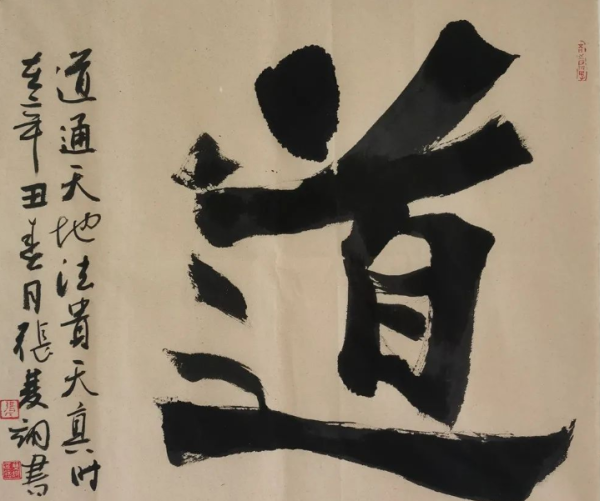 道
道通天地法貴天真时
在辛丑春月張書